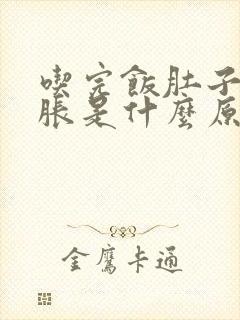 喫完飯肚子
脹是什麼原
金鷹卡通